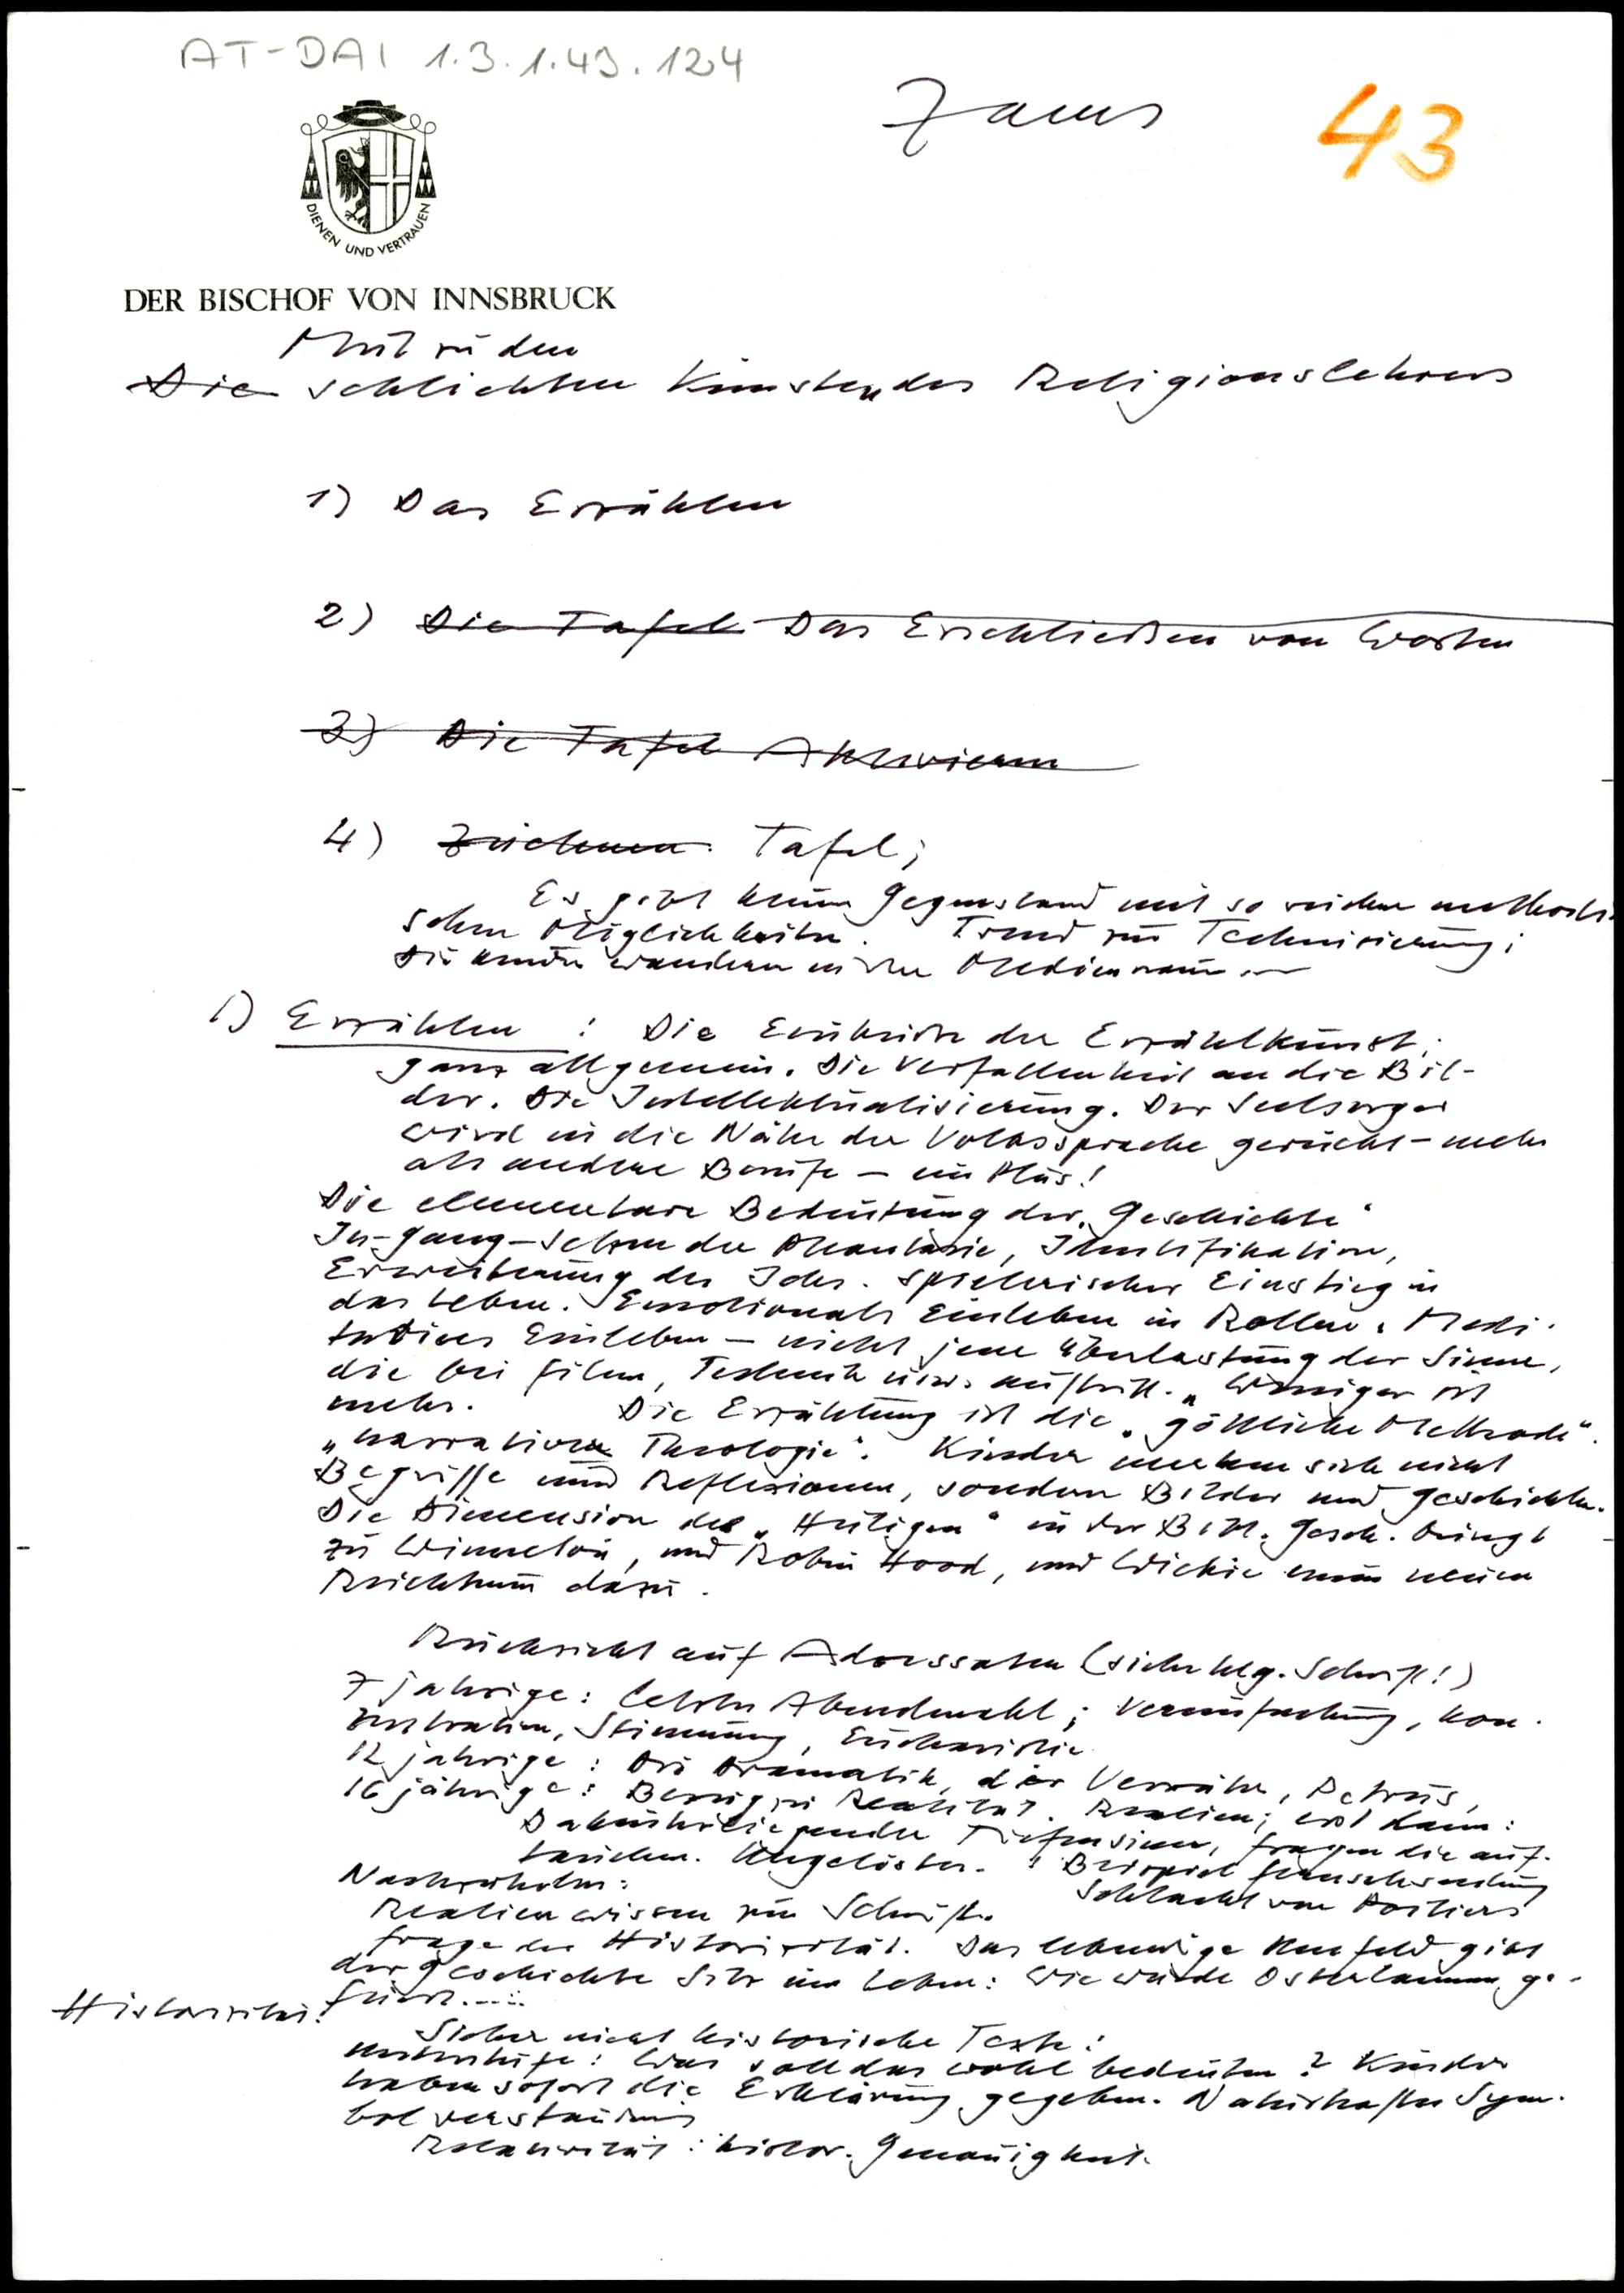 AT-DAI 1.3.1.43.124
Zams
43
DIENEN UND VERTRAUEN
DER BISCHOF VON INNSBRUCK
Mut zu den
Die schlichten Künsten des Religionslehrers
1) Das Erzählen
2) Die Tafel Das Erschließen von Worten
3) Die Tafel Aktivieren
4) Zeichnen. Tafel;
Es gibt keinen Gegenstand mit so reichen methodi-
schen Möglichkeiten. Trend zur Technisierung;
Die wandern in den Medienraum
1) Erzählen: Die Einbuße der Erzählkunst;
ganz allgemein. Die Verfallenheit an die Bil-
der. Die Intellektualisierung. Der Seelsorger
wird in die Nähe der Volkssprache gerückt - mehr
als andere Berufe - ein Plus!
Die elementare Bedeutung der "Geschichte"
In-Gang-Setzen der Phantasie, Identifikation,
Erweiterung des Ichs. Spielerischer Einstieg in
das Leben. Emotionales Einleben in Rollen. Medi-
tatives Einleben - nicht jene Überlastung der Sinne,
die bei Filmen, Technik usw. auftritt. "Weniger ist
mehr. Die Erzählung ist die "göttliche Methode".
"narrative Theologie". Kinder merken sich nicht
Begriffe und Reflexionen, sondern Bilder und Geschichten.
Die Dimension des "Heiligen" in der Bibl. Gesch. bringt
zu Winnetou, und Robin Hood, und Wickie einen neuen
Reichtum dazu.
Rücksicht auf Adressaten (siehe hlg. Schrift!)
7 jährige: Letztes Abendmahl; Vereinfachung, Kon-
zentration, Stimmung, Eucharistie
12 jährige: Die Dramatik, der Verräter, Petrus,
16 jährige: Bezug zur Realität. Realien; erst dann:
Dahinterliegender Tiefensinn, Fragen die auf-
tauchen. Ungelöstes. Beispiel Fernsehsendung
Schlacht von Poitiers
Nachzuholen:
Realienwissen zur Schrift.
Frage der Historizität. Das lebendige Umfeld gibt
der Geschichte Sitz im Leben: Wie wurde Osterlamm ge-
feiert....
Historizität:
Sicher nicht historische Texte:
Was soll das wohl bedeuten? Kinder
haben sofort die Erklärung gegeben. Naturhaftes Sym-
bolverständnis
Relativität: histor. Genauigkeit.